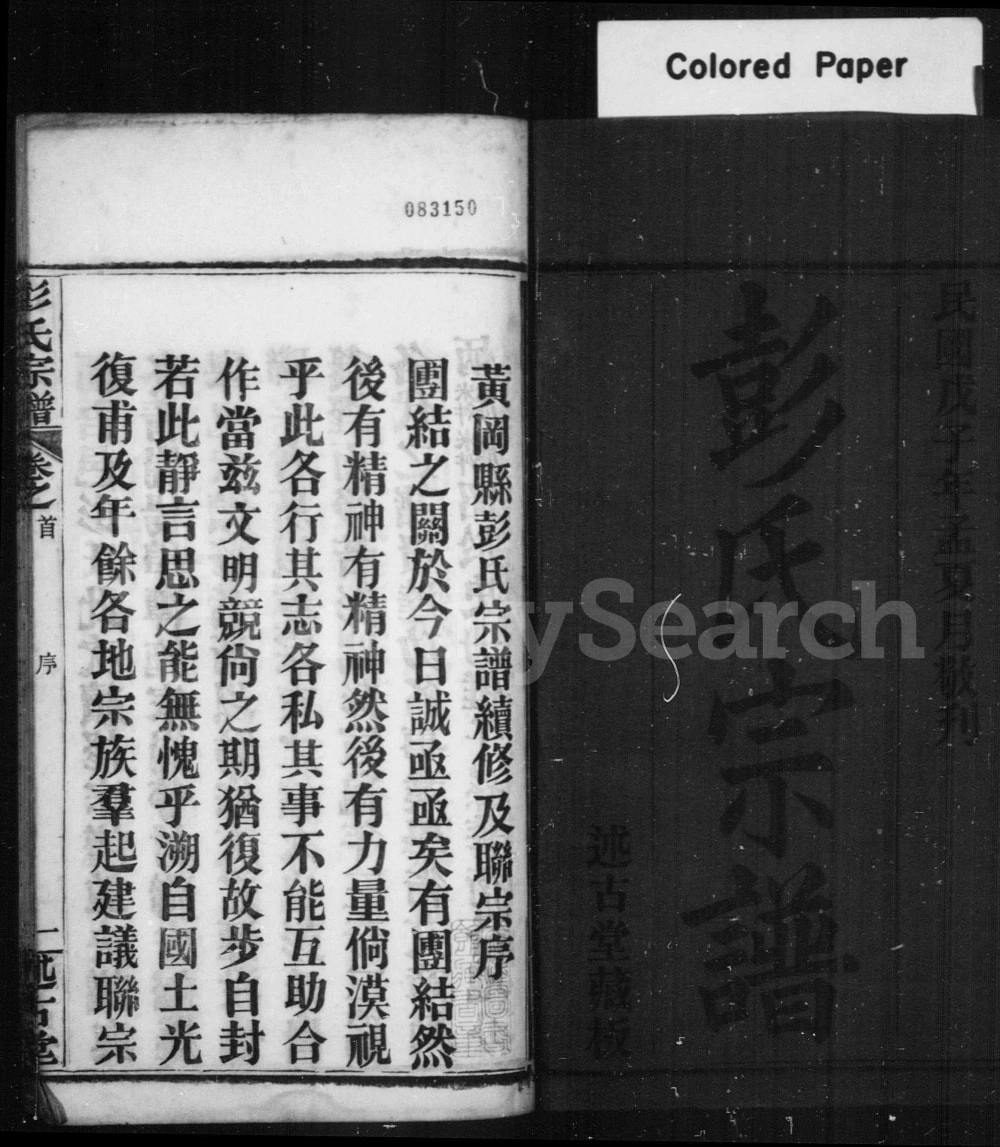 Colored Paper
民國戊子年孟夏月敬刋
彭氏宗譜
述古堂藏板
083150
黃岡縣彭氏宗譜續修及聯宗序
團結之關於今日誠亟亟矣有團結然
後有精神有精神然後有力量倘漠視
乎此各行其志各私其事不能互助合
作當兹文明競尙之期猶復故步自封
若此靜言思之能無愧乎溯自國土光
復甫及年餘各地宗族羣起建議聯宗
彭氏宗譜 卷之首 序 一 述古堂
ySearch